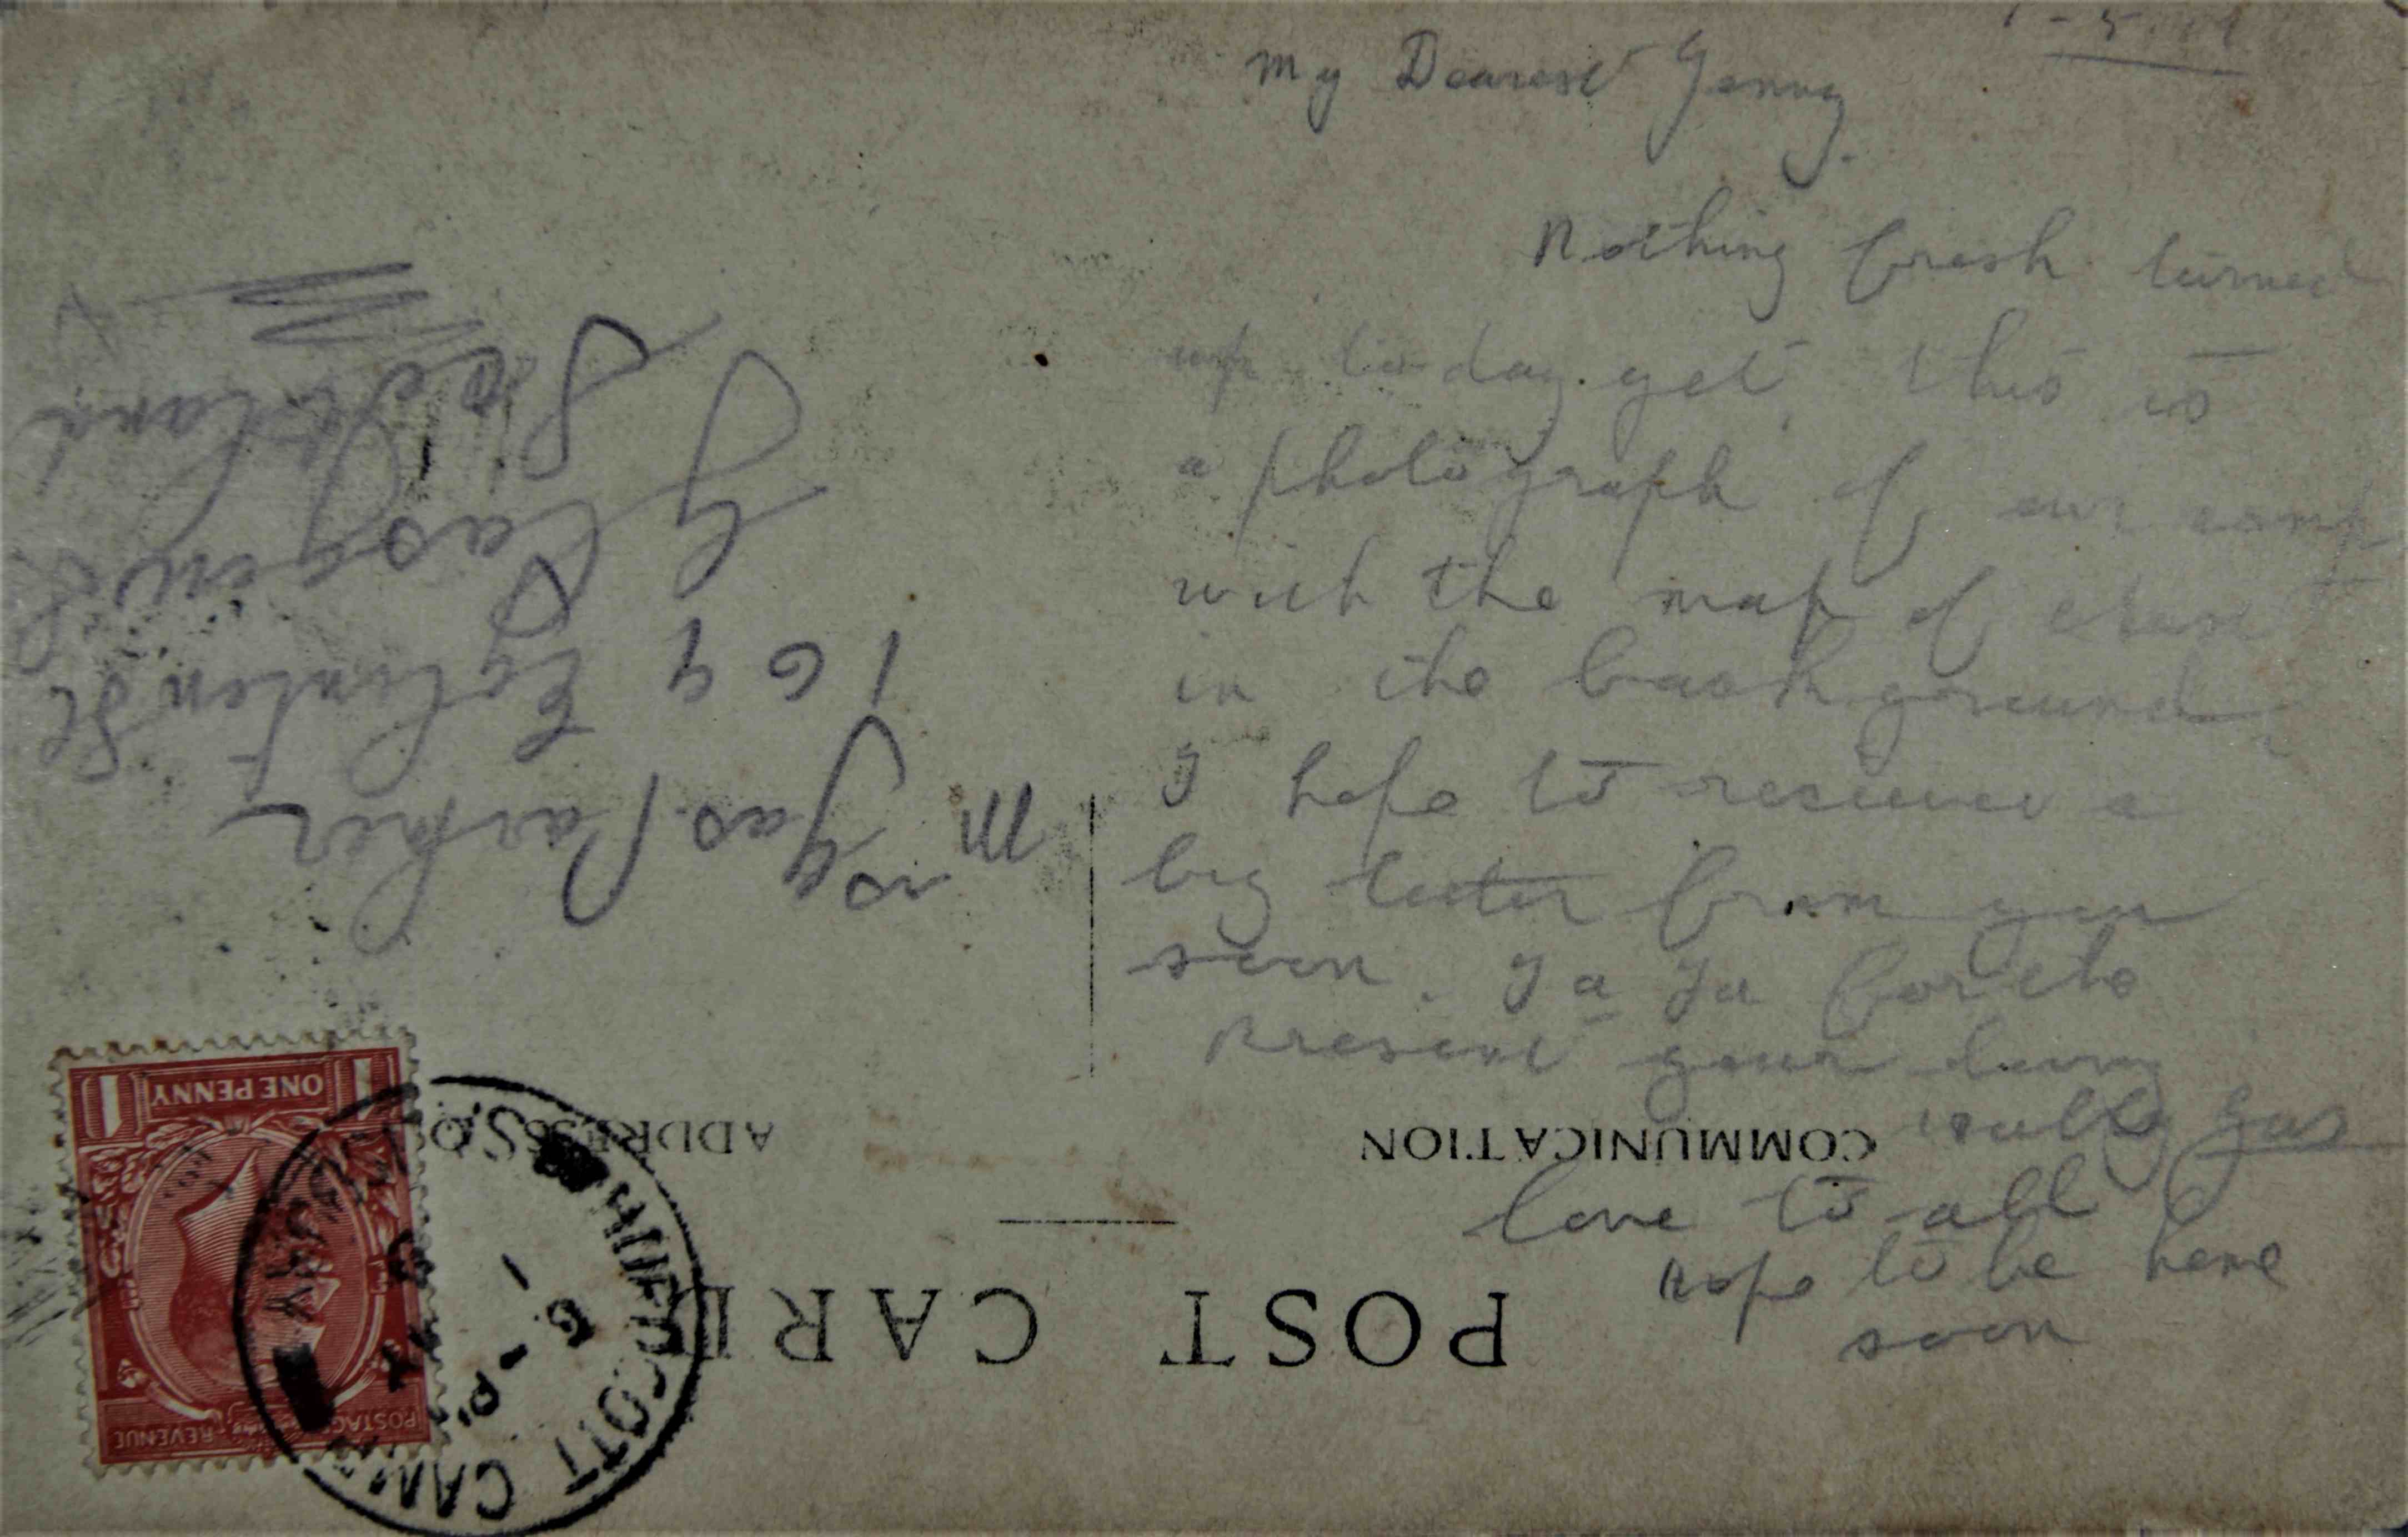 1-5.19
My Dearest Jenny.
Nothing fresh turned
up to day yet, this is
a photograph of our camp
with the map of
in the background
I hope to resieve a
big letter from you
soon. Ta Ta for the
present your loving
Jas
love to all
Hope to be home
soon
POST CARD
COMMUNICATION
ADDRESS
Mrs Jas. Parker
169 Eglinton St
Glasgow
Scotland
ONE PENNY
1 1
POSTAGE REVENUE
HURDCOTT CAMP
S.O.
SALISBURY